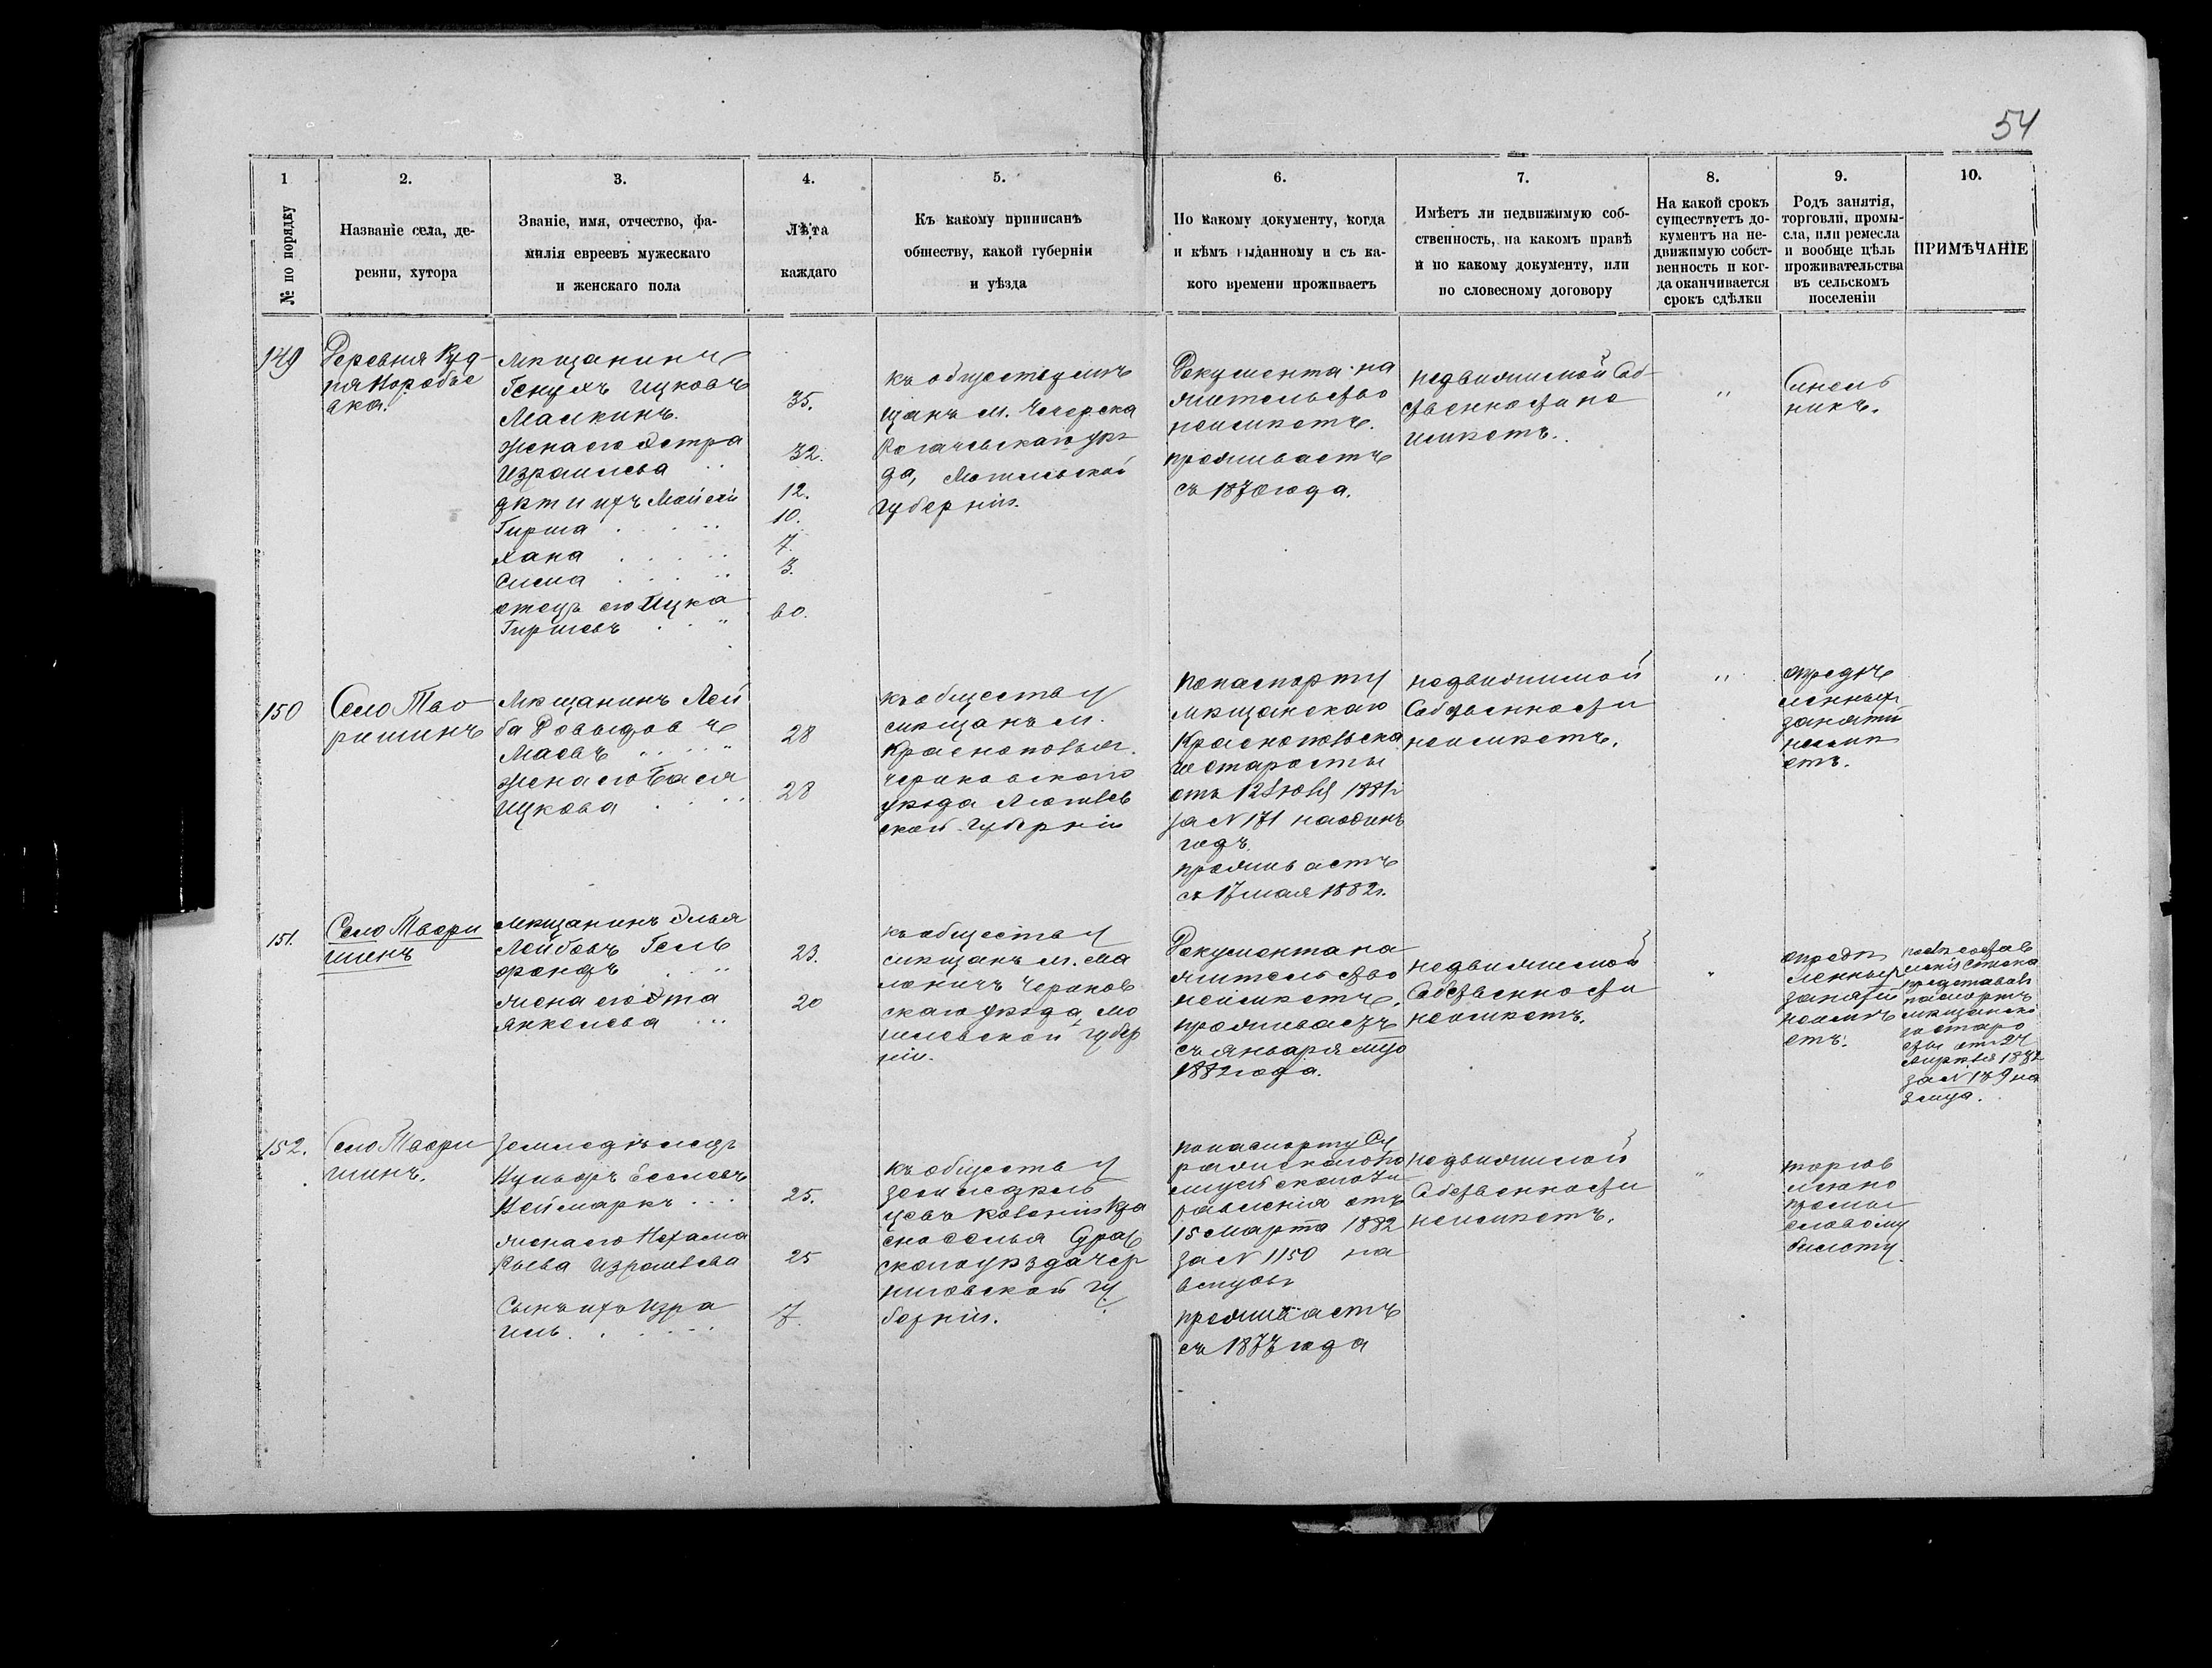 54
1
2.
3.
4.
5.
6.
7.
8.
9.
10.
№ по порядку
Названіе села, де-
ревни, хутора
Званіе, имя, отчество, фа-
милія евреевъ мужескаго
и женскаго пола
Лѣта
каждаго
Къ какому приписанъ
обществу, какой губерніи
и уѣзда
По какому документу, когда
и кѣмъ выданному и съ ка-
кого времени проживаетъ
Имѣетъ ли недвижимую соб-
ственность, на какомъ правѣ
и по какому документу, или
по словесному договору
На какой срокъ
существуетъ до-
кументъ на не-
движимую собст-
венность и ког-
да оканчивается
срокъ сдѣлки
Родъ занятія,
торговли, промы-
сла, или ремесла
и вообще цѣль
проживательства
въ сельскомъ
поселеніи
ПРИМѢЧАНІЕ
149
Деревня Руд-
ня Воробье
вка.
Мѣщанинъ
Генухъ Ицковъ
Малкинъ.
жена его Эстра
Израилева
дѣти ихъ
Гирша
Хана
Сима
отецъ его Ицка
Гиршевъ
35.
32.
12.
10.
7.
3.
60.
къ обществу мѣ
щанъ м. Чечерска
Рогачевскаго уѣз
да, Могилевской
губерніи.
Документа на
жительство
неимѣетъ.
проживаетъ
съ 1870 года.
недвижимой Соб
ственности не
имѣетъ.
"
Синель
никъ.
150
Село Тво
ришинъ
Мѣщанинъ Лей
ба Довыдовъ
Маевъ
жена его Бася
Ицкова
28
28
къ обществу
мѣщанъ м.
Краснополья
Чериковского
уѣзда Могилев
ской губерніи
По паспорту
мѣщанскаго
Краснопольска
го старосты
отъ 12 Іюня 1881 г
за N 171 на одинъ
годъ.
проживаетъ
съ 17 мая 1882 г.
недвижимой
Собственности
неимѣетъ.
"
опредѣ
ленныхъ
занятій
неимѣ
етъ.
151.
Село Твори
шинъ
Мѣщанинъ Элья
Лейбовъ Гель
фондъ
жена его Эта
Янкелева
23.
20
къ обществу
мѣщанъ м. Ма
лячъ Чериков
скаго уѣзда, Мо
гилевской губер
ніи.
Документа на
жительство
неимѣетъ.
проживаетъ
съ января мца
1882 года.
недвижимой
Собственности
неимѣетъ.
"
опредѣ
ленныхъ
занятій
неимѣ
етъ.
послѣ состав
ленія списка
представилъ
паспортъ
мѣщанска
го старо
сты отъ 24
1882
за N 139 на
3 мца.
152.
Село Твори
шинъ.
Земледѣлецъ
Вульфъ Еселевъ
Неймаркъ
жена его Нехама
Рыва Израилева
Сынъ ихъ Изра
иль
25.
25
7.
къ обществу
земледѣль
цевъ колоніи Кра
сноселья Сураж
скаго уѣзда Чер
ниговской гу
берніи.
по паспорту Су
ражскаго По
лицейскаго Уп
равленія отъ
15 марта 1882
за N 1150 на
проживаетъ
съ 1877 года
недвижимой
Собственности
неимѣетъ.
"
торгов
ля по
промы
словому
билету.